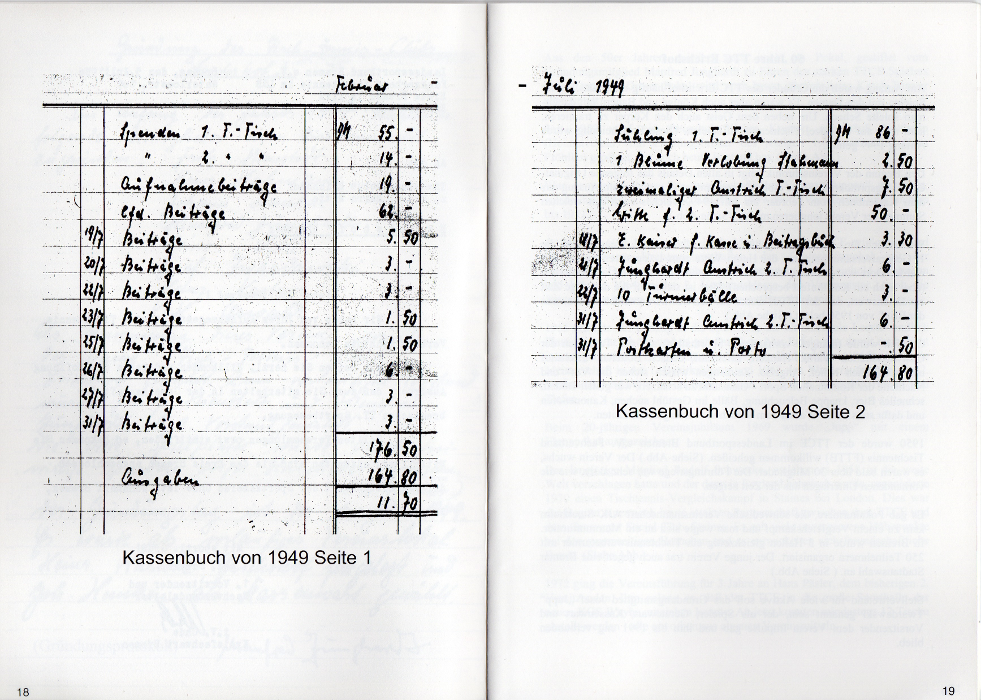 Februar -
Spenden 1. T.-Tisch DM 55. -
" 2. " " 14. -
Aufnahmebeiträge 19. -
lfd. Beiträge 62. -
19/7 Beiträge 5. 50
20/7 Beiträge 3. -
22/7 Beiträge 3. -
23/7 Beiträge 1. 50
25/7 Beiträge 1. 50
26/7 Beiträge 6 -
27/7 Beiträge 3. -
31/7 Beiträge 3. -
176. 50
Ausgaben 164. 80
11. 70
Kassenbuch von 1949 Seite 1
18
- Juli 1949
1. T.-Tisch DM 86. -
1 Blume Verlobung 2. 50
zweimaliger Anstrich T.-Tisch 7. 50
f. 2. T.-Tisch 50. -
18/7 E. Kaiser f. Kasse u. Beitragsbuch 3. 30
21/7 Junghardt Anstrich 2. T. Tisch 6. -
22/7 10 Turnierbälle 3. -
31/7 Junghardt Anstrich 2. T.-Tisch 6. -
31/7 Postkarten u. Porto -. 50
164. 80
Kassenbuch von 1949 Seite 2
19